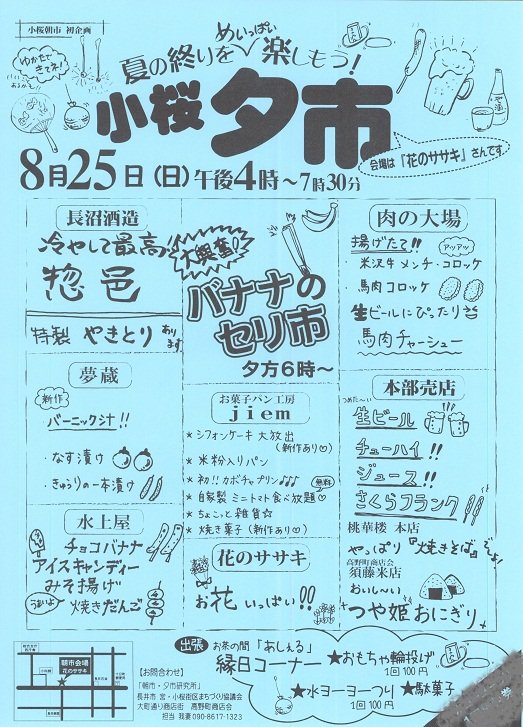 小桜朝市 初企画
夏の終りをめいっぱい楽しもう!
ゆかたできてネ!
小桜 夕市
会場は『花のササキ』さんです
8月25日(日)午後4時〜7時30分
長沼酒造
冷やして最高!
惣邑
特製 やきとり あります
大興奮!
バナナの
セリ市
夕方6時〜
肉の大場
揚げたて!! アッアッ
・米沢牛メンチ・コロッケ
・馬肉コロッケ
生ビールにぴったり
馬肉チャーシュー
夢蔵
新作
バーニック汁!!
・なす漬け
・きゅうりの一本漬け
お菓子パン工房
jiem
★シフォンケーキ 大放出
(新作あり♡)
★米粉入りパン
★初!!カボチャプリン♪♪♪
無料
★自家製 ミニトマト食べ放題♡
★ちょこっと雑貨☆
★焼き菓子(新作あり♡)
本部売店
つめた〜い
生ビール
チューハイ!!
ジュース!!
さくらフランク
桃華楼 本店
やっぱり『焼きそば』ぞよ!
高野町商店会
須藤米店
おいし〜い
つや姫おにぎり
水上屋
チョコバナナ
アイスキャンディー
みそ揚げ
うまいよ 焼きだんご
花のササキ
お花 いっぱい!!
朝市会場
花のササキ
【お問合わせ】
「朝市・夕市研究所」
長井市 宮・小桜街区まちづくり協議会
大町通り商店街 高野町商店会
担当 我妻 090-8617-1323
出張 お茶の間「あしぇる」
縁日コーナー
★おもちゃ輪投げ
1回100円
★水ヨーヨーつり
1回100円
★駄菓子